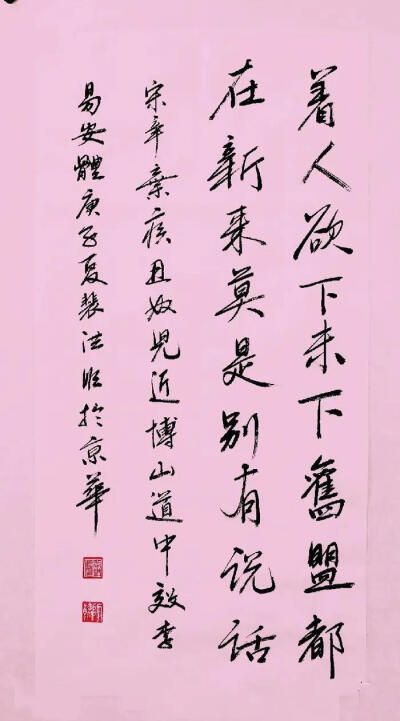 着人欲下未下舊盟都
在新来莫是别有说话
宋辛棄疾丑奴兒近博山道中效李
易安體庚子夏裴洪於京華